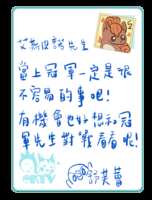 艾斯伯諾先生
當上冠軍一定是很
不容易的事吧！
有機會也好想和冠
軍先生對戰看看啦！